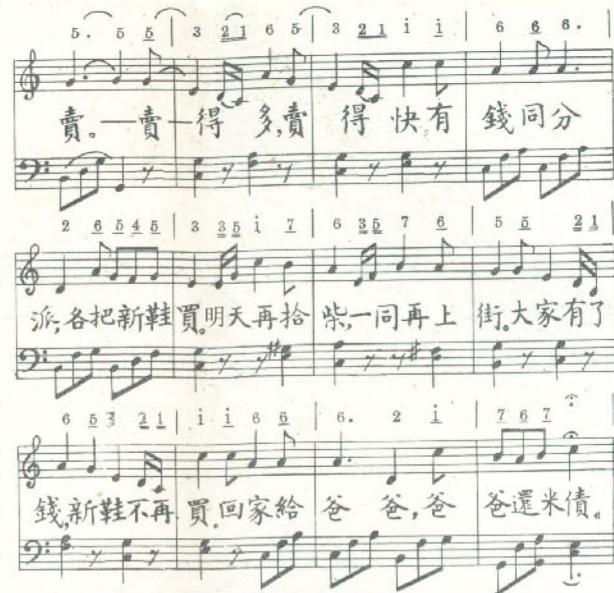 5. 5 5 | 3 21 6 5 | 3 21 i i | 6 6 6. |
賣。一賣一得 多,賣 得 快有 錢同分
2 6 5 4 5 | 3 3 5 i 7 | 6 3 5 7 6 | 5 5 2 1 |
派,各把新鞋買。明天再拾 柴,一同再上 街。大家有了
6 5 3 2 1 | i i 6 6 | 6. 2 i | 7 6 7
錢,新鞋不再買。回家給 爸 爸,爸 爸還米債。